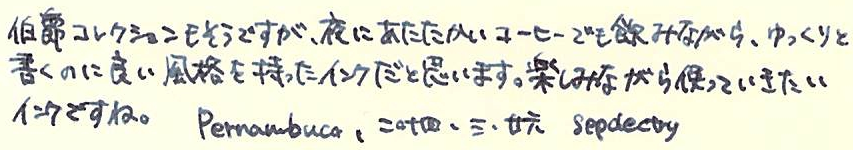 伯爵コレクションもそうですが、夜にあたたかいコーヒーでも飲みながら、ゆっくりと
書くのに良い風格を持ったインクだと思います。楽しみながら使っていきたい
インクですね。 Pernambuco、二〇二四、三、廿六